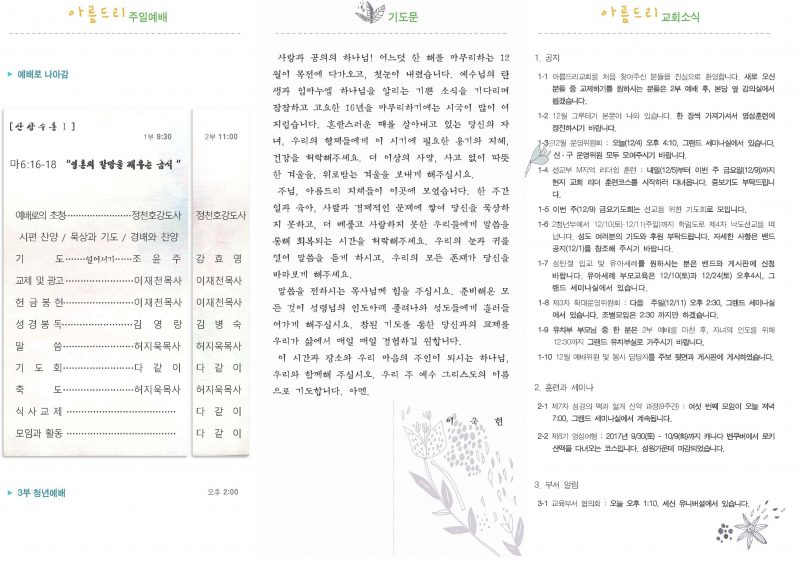 아름드리 주일예배
▶ 예배로 나아감
[산상수훈 Ⅰ]
1부 9:30 2부 11:00
마6:16-18 "영혼의 갈망을 채우는 금식"
예배로의 초청 정천호강도사 정천호강도사
시편 찬양 / 묵상과 기도 / 경배와 찬양
기 도 일어서기 조 윤 주 강 효 영
교제 및 광고 이재천목사 이재천목사
헌 금 봉 헌 이재천목사 이재천목사
성 경 봉 독 김 영 랑 김 병 숙
말 씀 허지욱목사 허지욱목사
기 도 회 다 같 이 다 같 이
축 도 허지욱목사 허지욱목사
식 사 교 제 다 같 이
모임과 활동 다 같 이
▶ 3부 청년예배 오후 2:00
기도문
사랑과 공의의 하나님! 어느덧 한 해를 마무리하는 12
월이 목전에 다가오고, 첫눈이 내렸습니다. 예수님의 탄
생과 임마누엘 하나님을 알리는 기쁜 소식을 기다리며
잠잠하고 고요한 16년을 마무리하기에는 시국이 많이 어
지럽습니다. 혼란스러운 때를 살아내고 있는 당신의 자
녀, 우리의 형제들에게 이 시기에 필요한 용기와 지혜,
건강을 허락해주세요. 더 이상의 사망, 사고 없이 따뜻
한 겨울을, 위로받는 겨울을 보내게 해주십시오.
주님, 아름드리 지체들이 이곳에 모였습니다. 한 주간
일과 육아, 사람과 경제적인 문제에 쌓여 당신을 묵상하
지 못하고, 더 베풀고 사랑하지 못한 우리들에게 말씀을
통해 회복되는 시간을 허락해주세요. 우리의 눈과 귀를
열어 말씀을 듣게 하시고, 우리의 모든 존재가 당신을
바라보기 해주세요.
말씀을 전하시는 목사님께 힘을 주십시오. 준비해온 모
든 것이 성령님의 인도아래 풀려나와 성도들에게 흘러들
어가게 해주십시오. 참된 기도를 통한 당신과의 교제를
우리가 삶에서 매일 매일 경험하길 원합니다.
이 시간과 장소와 우리 마음의 주인이 되시는 하나님,
우리와 함께해 주십시오. 우리 주 예수 그리스도의 이름
으로 기도합니다. 아멘.
이 웃 현
아름드리 교회소식
1. 공지
1-1 아름드리교회를 처음 찾아주신 분들을 진심으로 환영합니다. 새로 오신
분들 중 교제하기를 원하시는 분들은 2부 예배 후, 본당 옆 강의실에서
뵙겠습니다.
1-2 12월 그루테기 본문이 나와 있습니다. 한 질씩 가져가셔서 영성훈련에
정진하시기 바랍니다.
1-3 12월 운영위원회 : 오늘(12/4) 오후 4:10, 그랜드 세미나실에서 있습니다.
신 · 구 운영위원 모두 모여주시기 바랍니다.
1-4 선교부 M지역 리더쉽 훈련 : 내일(12/5)부터 이번 주 금요일(12/9)까지
현지 교회 리더 훈련코스를 시작하러 다녀옵니다. 중보기도 부탁드립니
다.
1-5 이번 주(12/9) 금요기도회는 선교를 위한 기도회로 모입니다.
1-6 2청년부에서 12/10(토)-12/11(주일)까지 학림도로 제4차 낙도선교를 떠
납니다. 성도 여러분의 기도와 후원 부탁드립니다. 자세한 사항은 밴드
공지(12/1)를 참조해 주시기 바랍니다.
1-7 성탄절 입교 및 유아세례를 원하시는 분은 밴드와 게시판에 신청
바랍니다. 유아세례 부모교육은 12/10(토)과 12/24(토) 오후4시, 그
랜드 세미나실에서 있습니다.
1-8 제3차 확대운영위원회 : 다음 주일(12/11) 오후 2:30, 그랜드 세미나실
에서 있습니다. 조별모임은 2:30 까지만 하겠습니다.
1-9 유치부 부모님 중 한 분은 2부 예배를 마친 후, 자녀의 인도를 위해
12:30까지 그랜드 유치부실로 가주시기 바랍니다.
1-10 12월 예배위원 및 봉사 담당자를 주보 뒷면과 게시판에 게시하였습니다.
2. 훈련과 세미나
2-1 제7차 성경의 맥과 얼개 신약 과정(9주간) : 여섯 번째 모임이 오늘 저녁
7:00, 그랜드 세미나실에서 계속됩니다.
2-2 제8기 영성여행 : 2017년 9/30(토) - 10/9(화)까지 캐나다 벤쿠버에서 로키
산맥을 다녀오는 코스입니다. 성원가운데 마감되었습니다.
3. 부서 알림
3-1 교육부서 협의회 : 오늘 오후 1:10, 세신 유니버셜에서 있습니다.